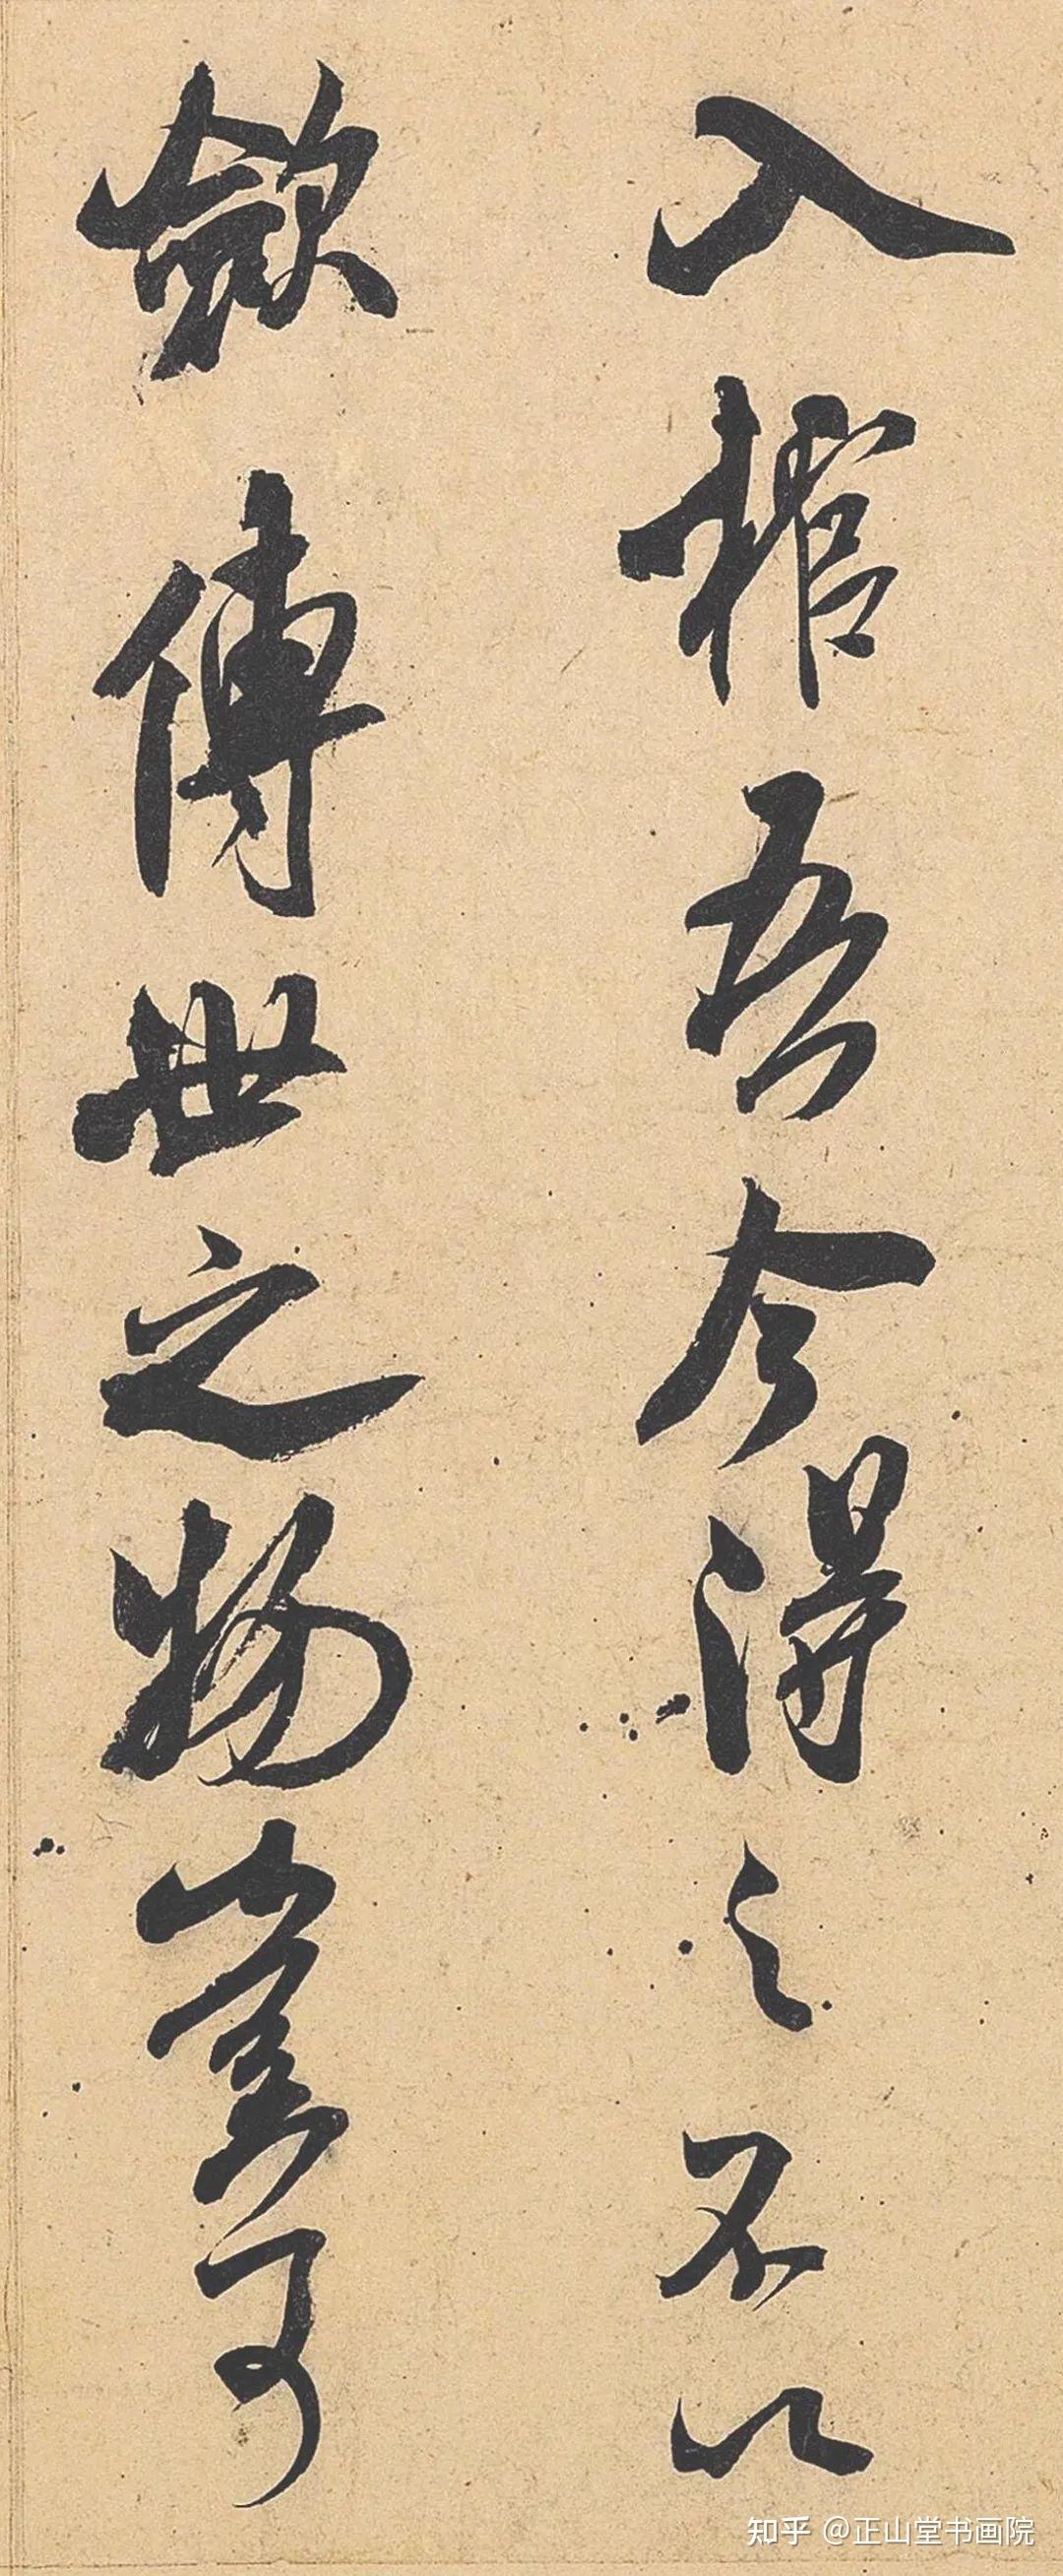 入棺吾今得之不以
斂傳世之物豈可
知乎 @正山堂书画院